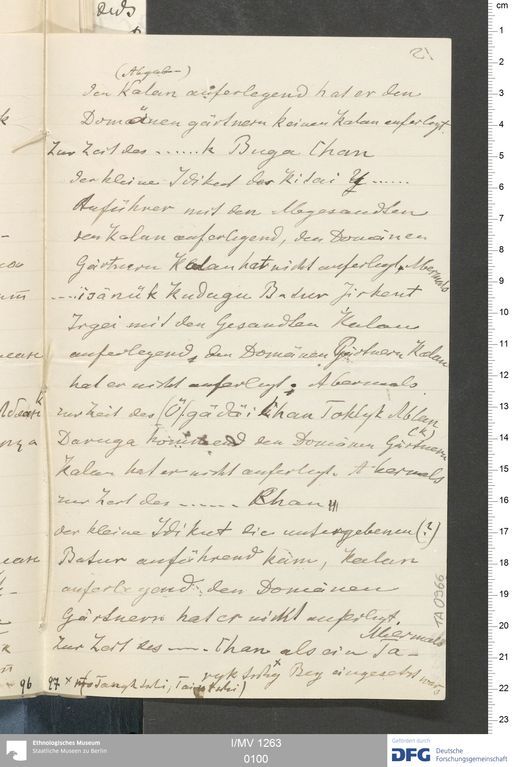 51
(Abgabe-)
den Kalan auferlegend hat er den
Domänen gärtnern keinen Kalan auferlegt.
Zur Zeit des ......k Buga Chan
der kleine Idikut der Kitai ......
Anführer mit den Abgesandten
den Kalan auferlegend, den Domänen
Gärtnern Kalan hat nicht auferlegt. Abermals
....isänük Kudugu Batur Jirkent
Irgei mit den Gesandten Kalan
auferlegend, den Domänen Gärtnern Kalan
hat er nicht auferlegt; Abermals
zur Zeit des (Ö)gädäi Chan Toklyk
Daruga kommend den Domänen Gärtnern
Kalan hat er nicht auferlegt. Abermals
zur Zeit des ....... Chan
der kleine Idikut die untergebenen (?)
Batur anführend käm, Kalan
auferlegend, den Domänen
Gärtnern hat er nicht auferlegt.
Abermals
Zur Zeit des —.— Chan als ein Ta-
Bey eingesetzt war
96 97
TA 0966
cm
1
2
3
4
5
6
7
8
9
10
11
12
13
14
15
16
17
18
19
20
21
22
23
Ethnologisches Museum
Staatliche Museen zu Berlin
I/MV 1263
0100
Gefördert durch
DFG Deutsche
Forschungsgemeinschaft